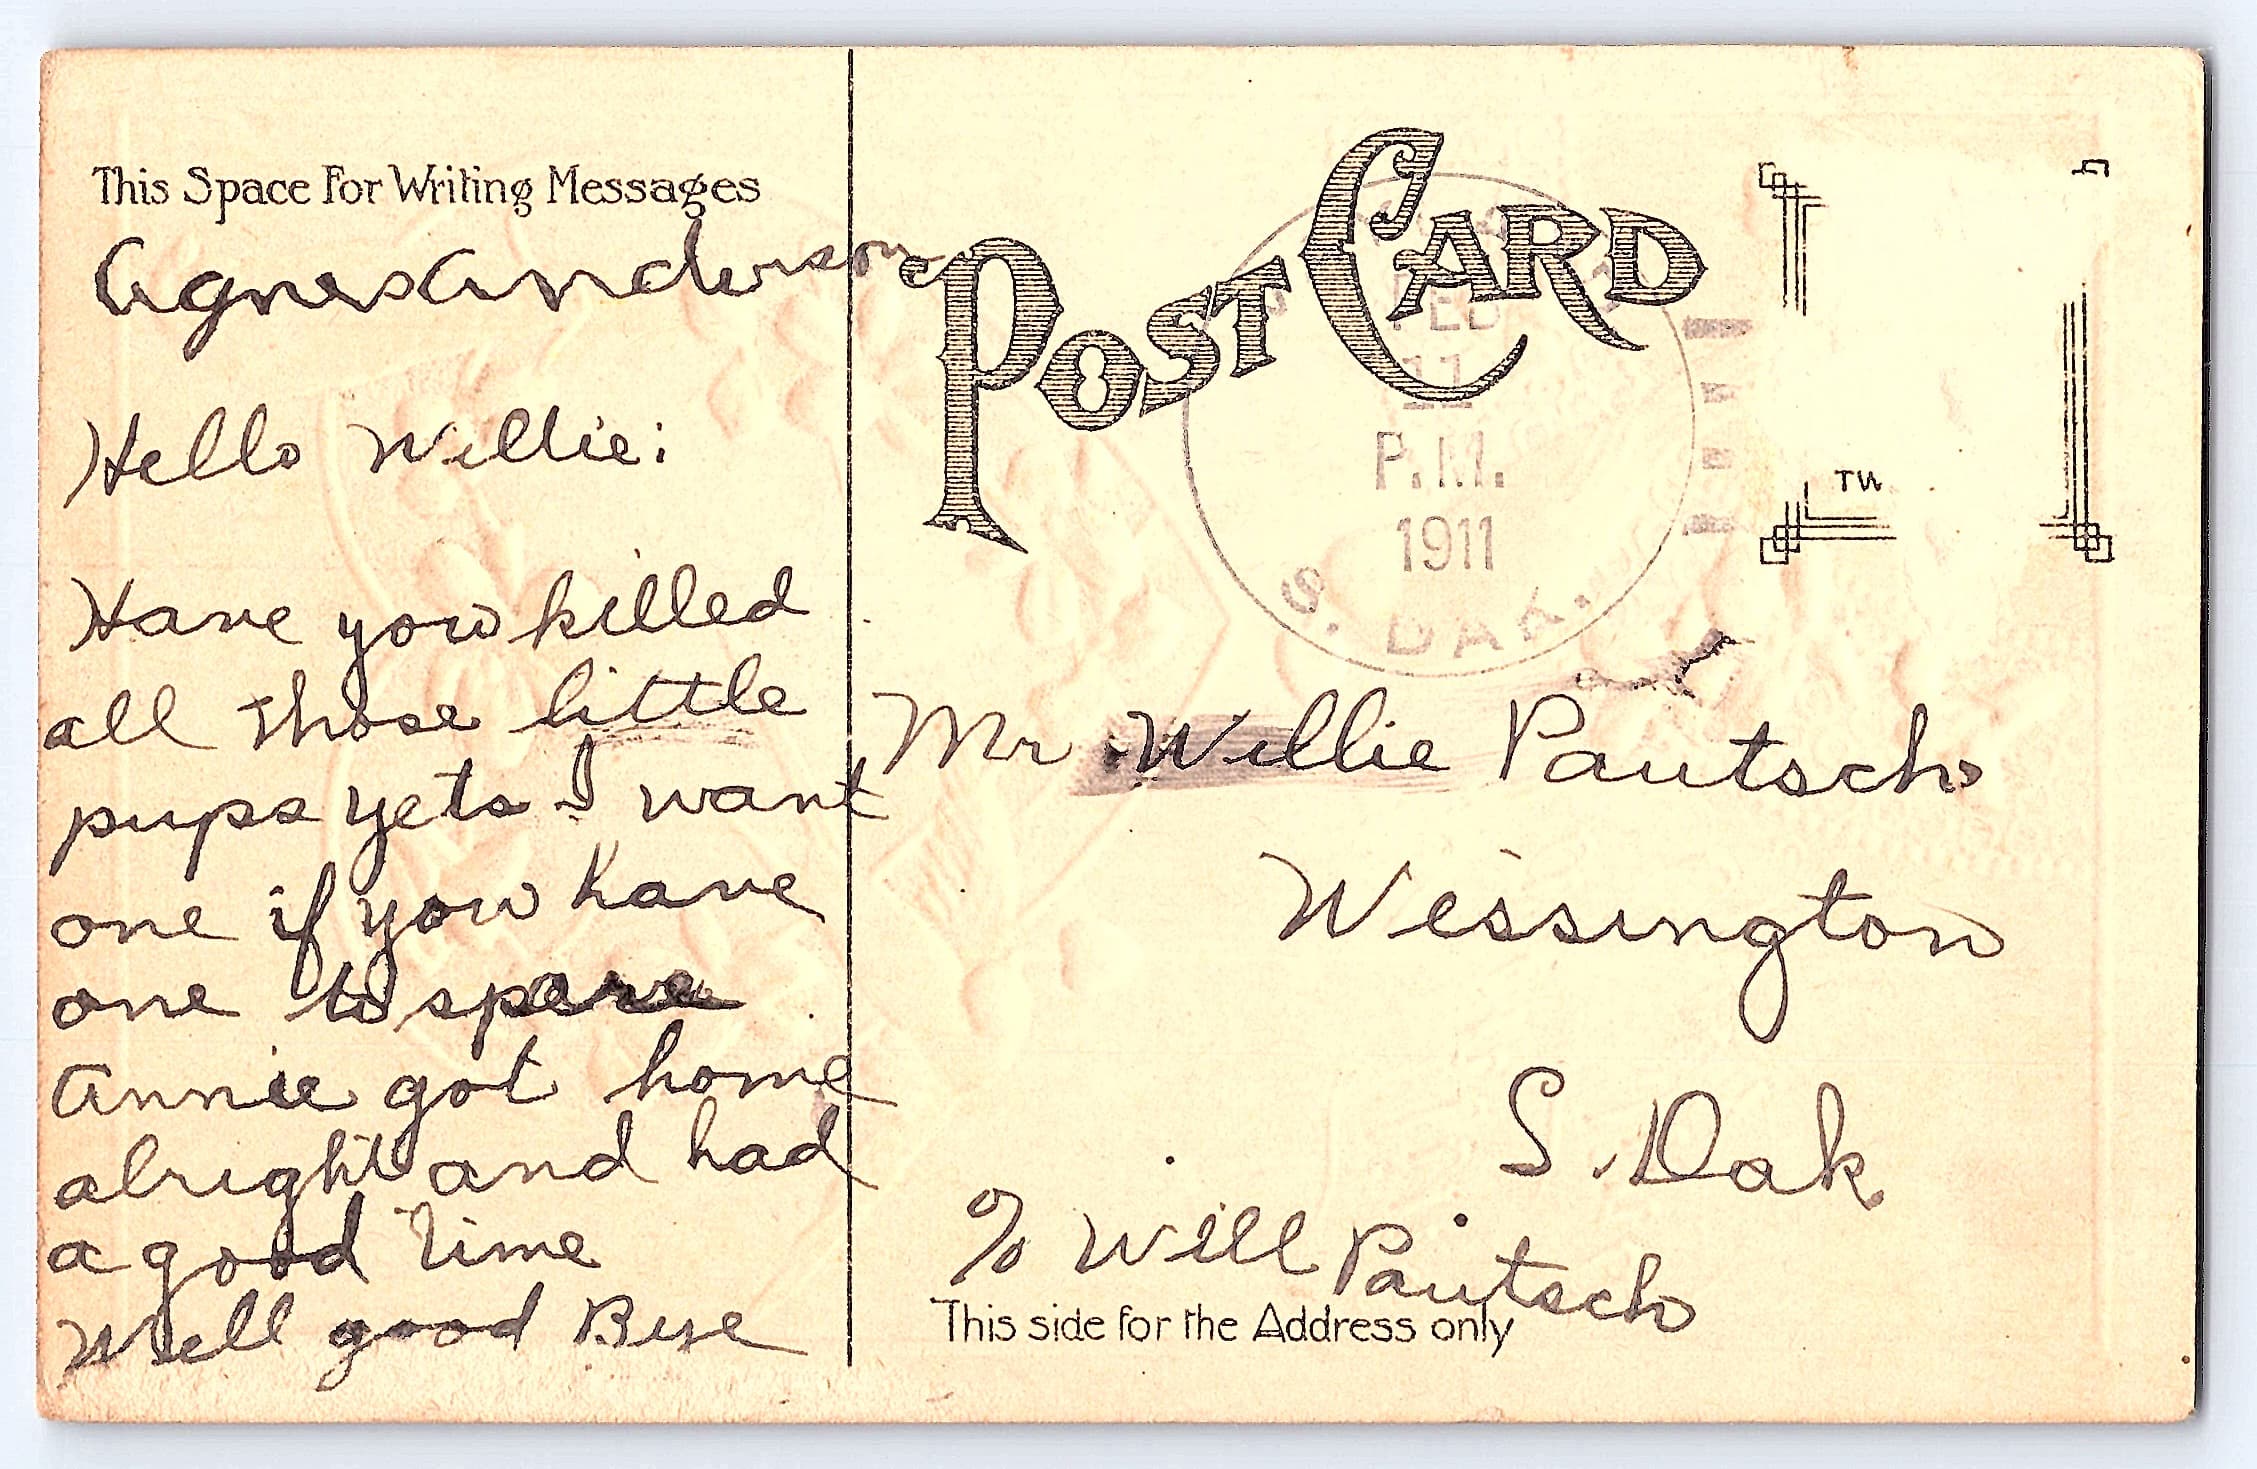 This Space For Writing Messages
Agnes Anderson
Hello Willie:
Have you killed
all those little
pups yets I want
one if you have
one to spare
Annie got home
alright and had
a good time
Well good Bye
POST CARD
FEB
11
P.M.
1911
S. DAK.
TW
Mr Willie Pautsch
Wessington
S. Dak
c/o Will Pautsch
This side for the Address only